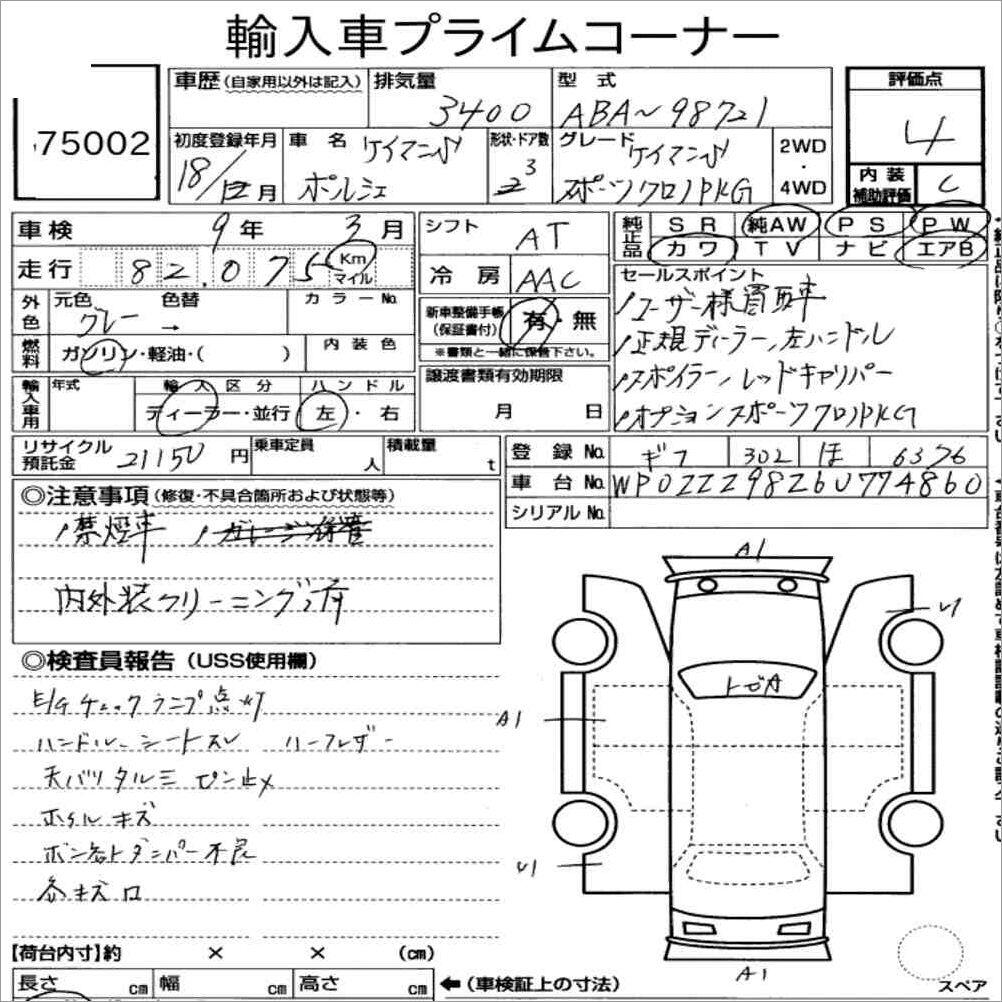 輸入車プライムコーナー
75002
車歴(自家用以外は記入)
排気量 3400
型式 ABA~98721
評価点 4
内装補助評価 C
初度登録年月 18/12月
車名 ポルシェ ケイマンS
形状・ドア数 3
グレード ケイマンS スポーツクロノPKG
2WD・4WD
車検 9年 3月
走行 82,075 Km マイル
外色 元色 グレー → 色替
カラーNo.
燃料 ガソリン・軽油・( )
内装色
輸入車用 年式
輸入区分 ディーラー・並行
ハンドル 左・右
シフト AT
冷房 AAC
新車整備手帳(保証書付) 有・無
※書類と一緒に保管下さい。
譲渡書類有効期限
月 日
純正品 SR 純AW PS PW
カワ TV ナビ エアB
セールスポイント
ユーザー様買取車
正規ディーラー、左ハンドル
スポイラー、レッドキャリパー
オプションスポーツクロノPKG
リサイクル預託金 21150円
乗車定員 人
積載量 t
登録No. ギフ 302 ほ 6376
車台No. WP0ZZZ98Z6U774860
シリアルNo.
◎注意事項(修復・不具合箇所および状態等)
禁煙車
内外装クリーニング済
◎検査員報告(USS使用欄)
E/Gチェックランプ点灯
ハンドル、シートスレ ハーフレザー
天バリタルミ ピン止メ
ホイルキズ
ボンネットダンパー不良
各キズ有
A1
U1
トビA
A1
U1
A1
【荷台内寸】約 × × (cm)
長さ cm 幅 cm 高さ cm
←(車検証上の寸法)
スペア